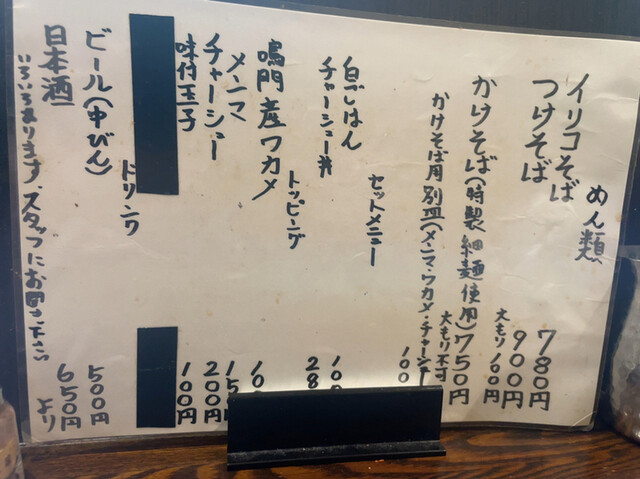 めん類
イリコそば 780円
つけそば 900円
大もり100円
かけそば(特製細麺使用)750円
大もり不可
かけそば用別皿(メンマ・ワカメ・チャーシュー 100
セットメニュー
白ごはん 10
チャーシュー丼 28
トッピング
鳴門産ワカメ 10
メンマ 15
チャーシュー 200円
味付玉子 100円
ドリンク
ビール(中びん) 500円
日本酒 650円より
いろいろあります。スタッフにお聞き下さい